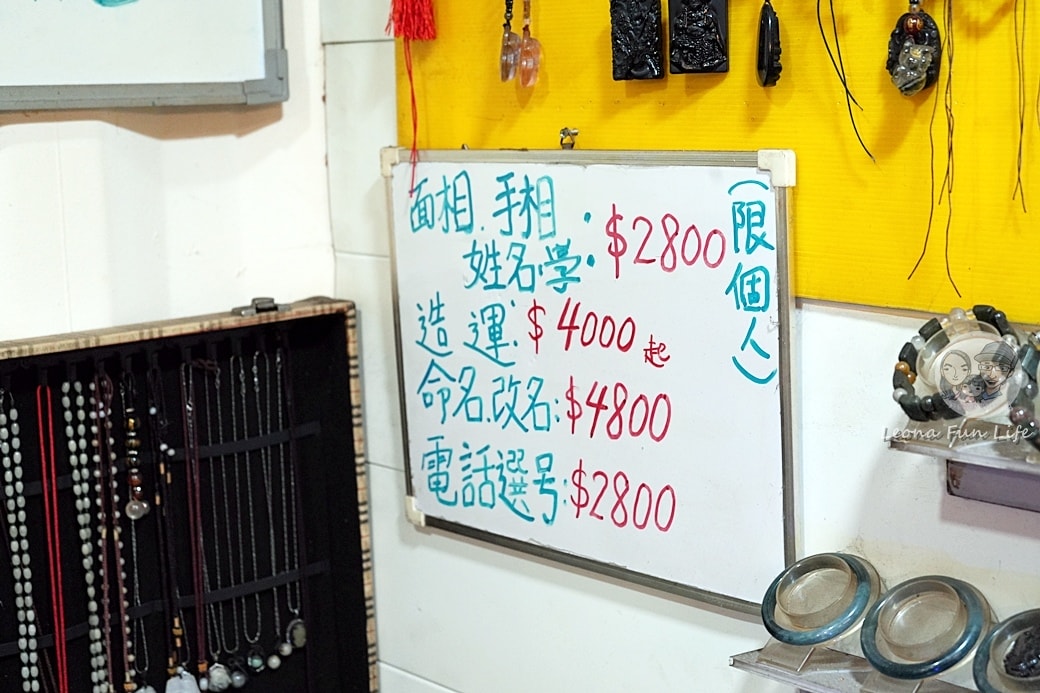 面相.手相
姓名.學:$2800
造運:$4000起
命名.改名:$4800
電話選号:$2800
(限個人)
Leona Fun Life